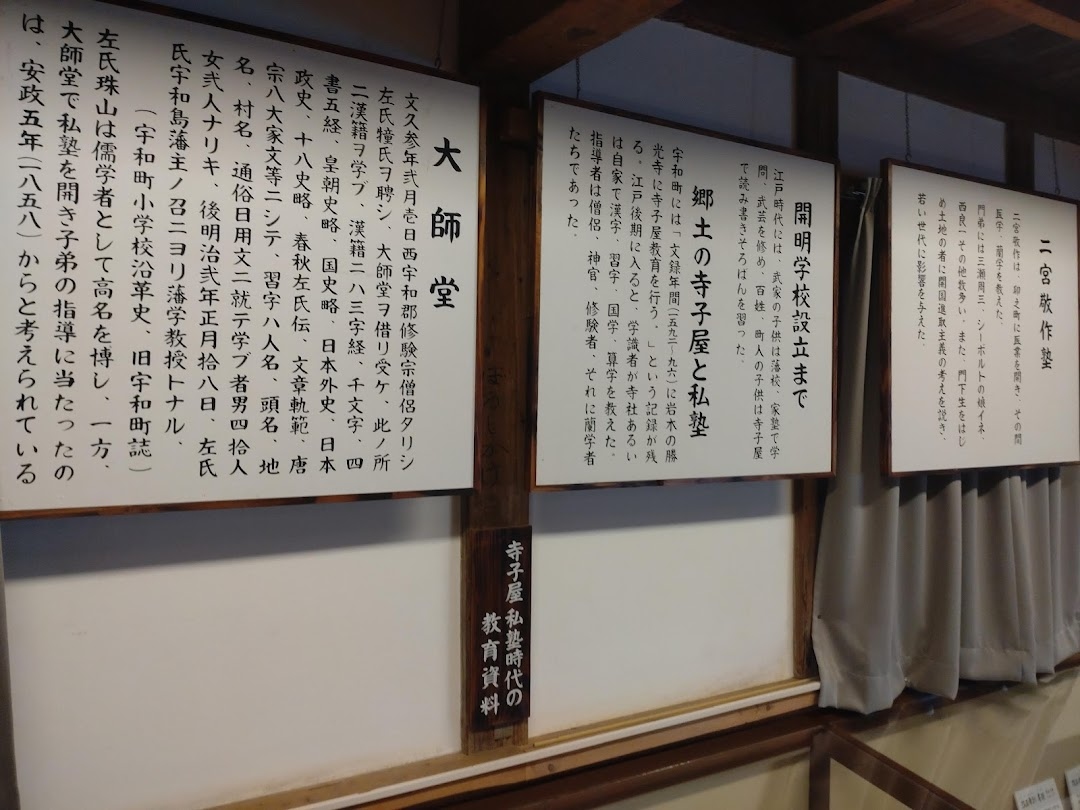 二宮敬作塾
二宮敬作は、卯之町に医業を開き、その間
医学、蘭学を教えた。
門弟には三瀬周三、シーボルトの娘イネ、
西良一その他数多い。また、門下生をはじ
め土地の者に開国進取主義の考えを説き、
若い世代に影響を与えた。
開明学校設立まで
江戸時代には、武家の子供は藩校、家塾で学
問、武芸を修め、百姓、町人の子供は寺子屋
で読み書きそろばんを習った。
郷土の寺子屋と私塾
宇和町には「文録年間(一五九二-九六)に岩木の勝
光寺に寺子屋教育を行う。」という記録が残
る。江戸後期に入ると、学識者が寺社あるい
は自家で漢字、習字、国学、算学を教えた。
指導者は僧侶、神官、修験者、それに蘭学者
たちであった。
大師堂
文久参年弐月壱日西宇和郡修験宗僧侶タリシ
左氏犝氏ヲ聘シ、大師堂ヲ借リ受ケ、此ノ所
ニ漢籍ヲ学ブ、漢籍ニハ三字経、千文字、四
書五経、皇朝史略、国史略、日本外史、日本
政史、十八史略、春秋左氏伝、文章軌範、唐
宗八大家文等ニシテ、習字ハ人名、頭名、地
名、村名、通俗日用文ニ就テ学ブ者男四拾人
女弐人ナリキ、後明治弐年正月拾八日、左氏
氏宇和島藩主ノ召ニヨリ藩学教授トナル、
(宇和町小学校沿革史、旧宇和町誌)
左氏珠山は儒学者として高名を博し、一方、
大師堂で私塾を開き子弟の指導に当たったの
は、安政五年(一八五八)からと考えられている
寺子屋私塾時代の
教育資料